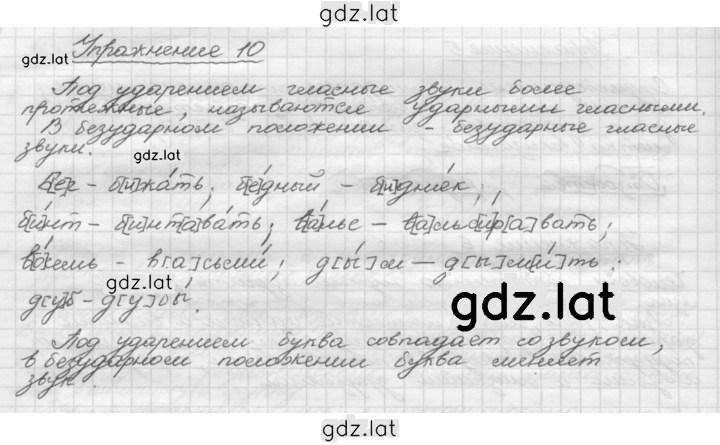 gdz.lat
Упражнение 10
gdz.lat
Под ударением гласные звуки более
протяжные, называются ударными гласными.
В безударном положении - безударные гласные
звуки.
gdz.lat
б[е]г - б[и]жа́ть; б[е́]дный - б[и]дня́к;
б[и́]нт - б[и]нт[а]ва́ть; в[а́]льс - в[а]льсир[а]вать;
в[о́]семь - в[а]сьми́; д[ы́]м - д[ы]м[и́]ть;
gdz.lat
д[у]б - д[у]бы́.
gdz.lat
Под ударением буква совпадает со звуком,
в безударном положении буква меняет
звук.
gdz.lat